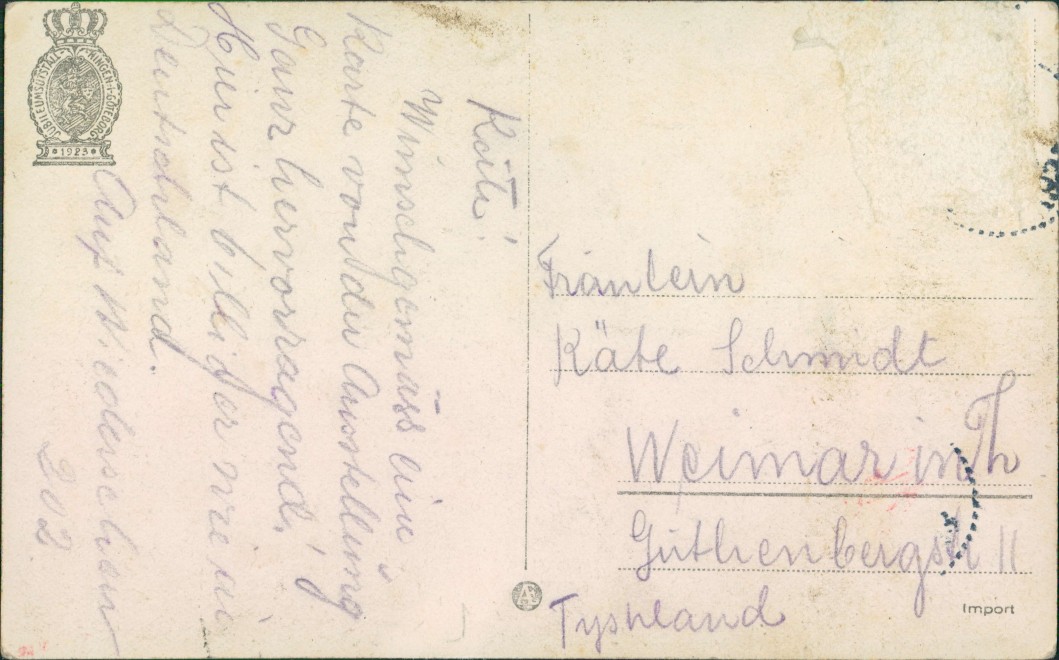 JUBILEUMSUTSTÄLLNINGEN I GÖTEBORG
1923
Käte!
Wünschgemäss eine
Karte von der Ausstellung
Ganz hervorragend.
Hier ist billiger wie in
Deutschland.
Auf Wiedersehen
Fräulein
Käte Schmidt
Weimar in Th
Guthenbergstr 11
Tyskland
Import